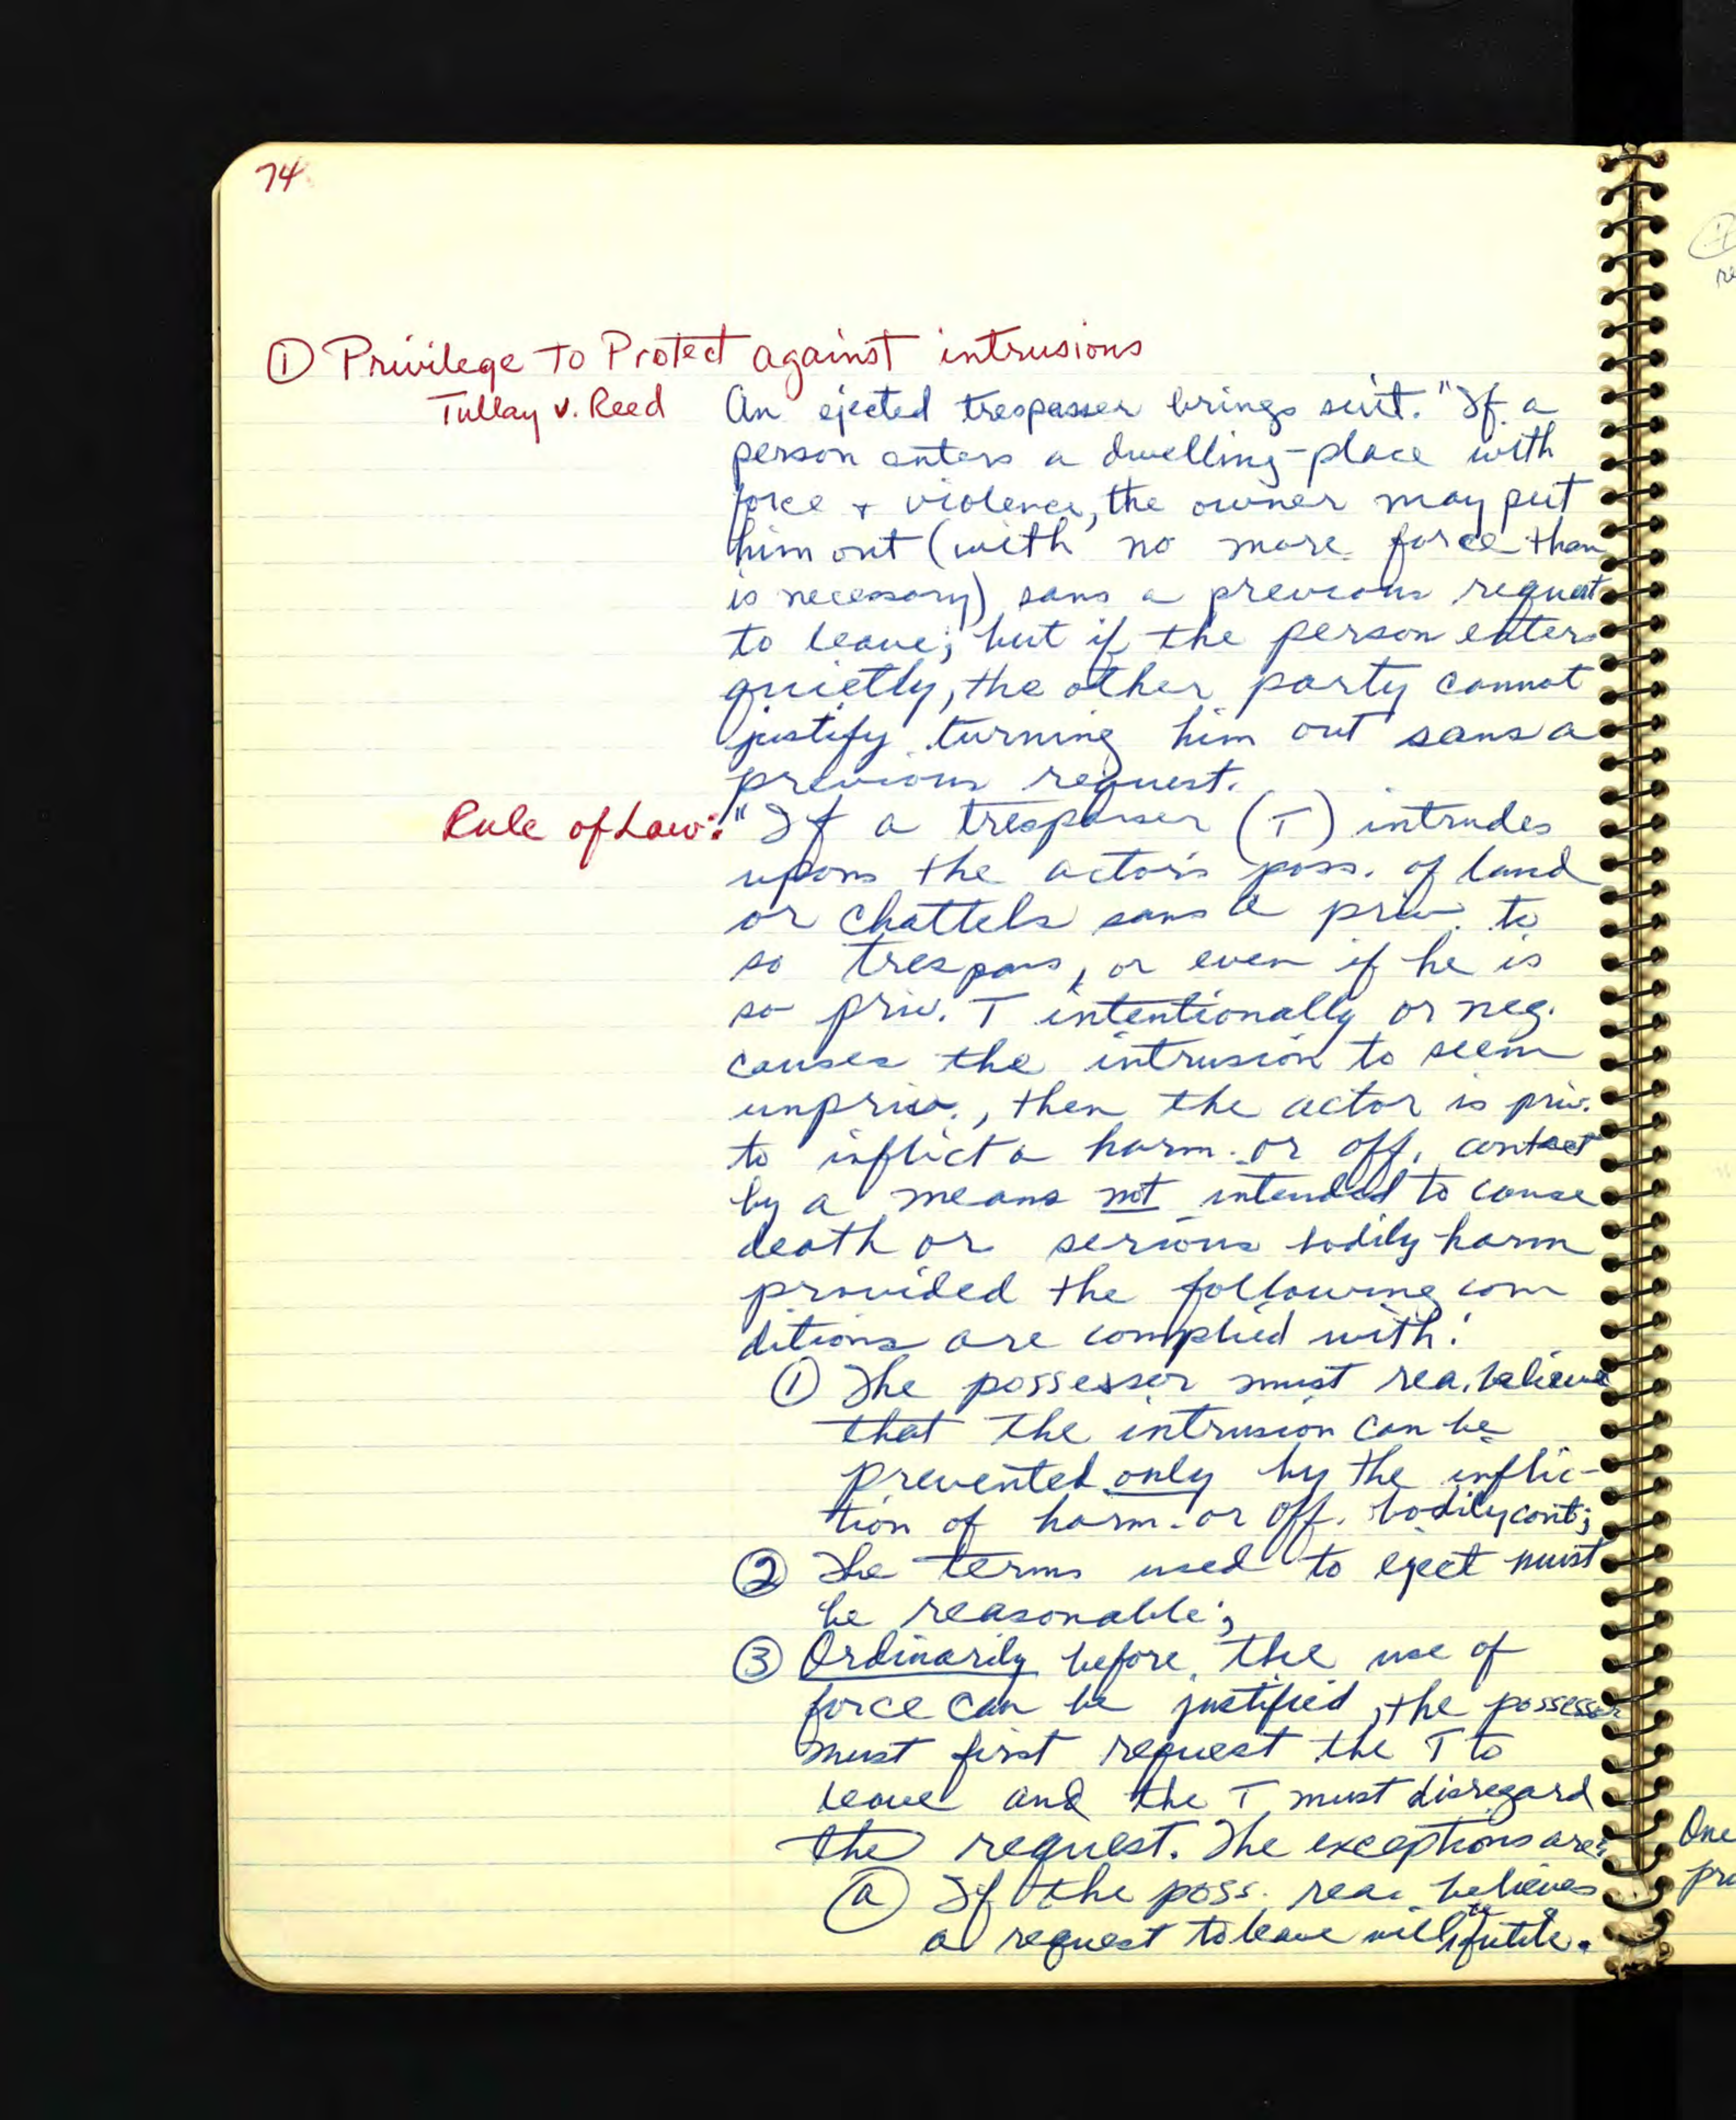 74
① Privilege to Protect against intrusions
Tullay v. Reed An ejected trespasser brings suit. "If a
person enters a dwelling-place with
force + violence, the owner may put
him out (with no more force than
is necessary) sans a previous request
to leave; but if the person enters
quietly, the other party cannot
justify turning him out sans a
previous request.
Rule of Law: "If a trespasser (T) intrudes
upons the actor's poss. of land
or chattels sans a priv. to
so trespass, or even if he is
so priv. T intentionally or neg.
causes the intrusion to seem
unpriv., then the actor is priv.
to inflict a harm. or off. contact
by a means not intended to cause
death or serious bodily harm
provided the following con
ditions are complied with:
① The possessor must rea. believe
that the intrusion can be
prevented only by the inflic-
tion of harm. or off. bodily cont;
② The terms used to eject must
be reasonable;
③ Ordinarily before the use of
force can be justified, the possessor
must first request the T to
leave and the T must disregard
the request. The exceptions are:
ⓐ If the poss. rea. believes
a request to leave will be futile.
①
re
One
pr